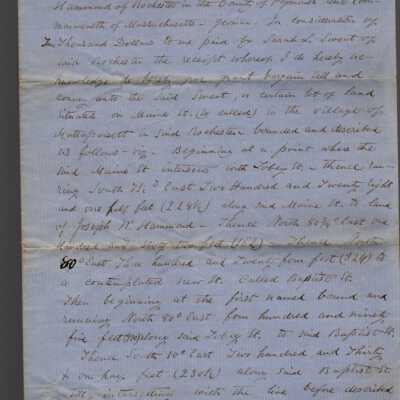 Hammond of Rochester in the County of Plymouth and Com-
monwealth of Massachusetts - 
In consideration of
Ten Thousand Dollars to me paid for Sarah L. Sweat of
said Rochester the receipt whereof I do hereby ac-
knowledge to hereby give grant bargain sell and
convey unto the said Sweat, a certain lot of land
situated on Maine St. (so called) in the village of
Mattapoisett in said Rochester bounded and described
as follows - viz - Beginning at a point where the
said Maine St intersects with Tobey St - thence run-
ning South 75° East Two Hundred and Twenty Eight
and one half feet (228½) along said Maine St. to land
of Joseph W. Hammond - Thence North 80¾° East one
Hundred and sixty two feet (162) - Thence South
80° East Three hundred and Twenty four feet (324) to
a contemplated new St. Called Baptist St.
Then beginning at the first named bound and
running North 80° East four hundred and ninety
five feet along said Tobey St. to said Baptist St.
Thence South 10° East Two hundred and Thirty
& one half feet (230½) along said Baptist St.
intersections with the line before described